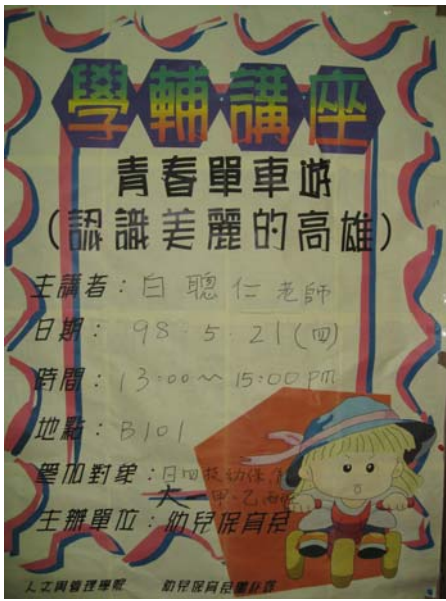 學輔講座
青春單車遊
(認識美麗的高雄)
主講者：白聰仁老師
日期：98.5.21(四)
時間：13:00～15:00pm
地點：B101
參加對象：日四技幼保
大一甲.乙
主辦單位：幼兒保育系
人文與管理學院 幼兒保育系